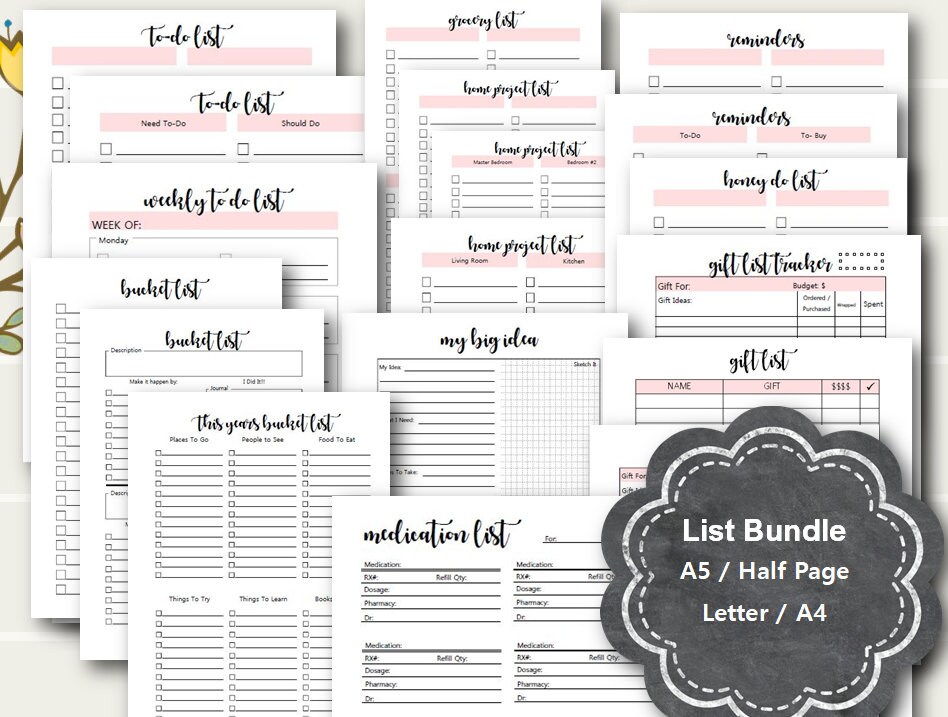 to-do list
to-do list
Need To-Do Should Do
weekly to do list
WEEK OF:
Monday
bucket list
bucket list
Description
Make it happen by: I Did It!!!
Journal
this years bucket list
Places To Go People to See Food To Eat
Things To Try Things To Learn Books
grocery list
home project list
home project list
Master Bedroom Bedroom #2
home project list
Living Room Kitchen
my big idea
My Idea: Sketch It
I Need:
To Take:
medication list For:
Medication: Medication:
RX#: Refill Qty: RX#: Refill Q
Dosage: Dosage:
Pharmacy: Pharmacy:
Dr: Dr:
Medication: Medication:
RX#: Refill Qty: RX#: Refill
Dosage: Dosage:
Pharmacy: Pharmacy:
Dr: Dr:
reminders
reminders
To-Do To- Buy
honey do list
gift list tracker
Gift For: Budget: $
Gift Ideas: Ordered / Purchased Wrapped Spent
gift list
NAME GIFT $$$$ ✓
Gift For
List Bundle
A5 / Half Page
Letter / A4